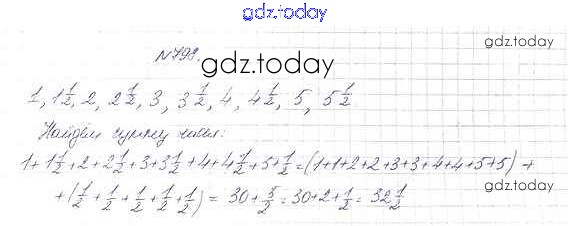 gdz.today
gdz.today
№798.
gdz.today
1, 1 1/2, 2, 2 1/2, 3, 3 1/2, 4, 4 1/2, 5, 5 1/2
Найдём сумму чисел:
1+1 1/2+2+2 1/2+3+3 1/2+4+4 1/2+5+1/2=(1+1+2+2+3+3+4+4+5+5)+
gdz.today
+(1/2+1/2+1/2+1/2+1/2)=30+5/2=30+2+1/2=32 1/2